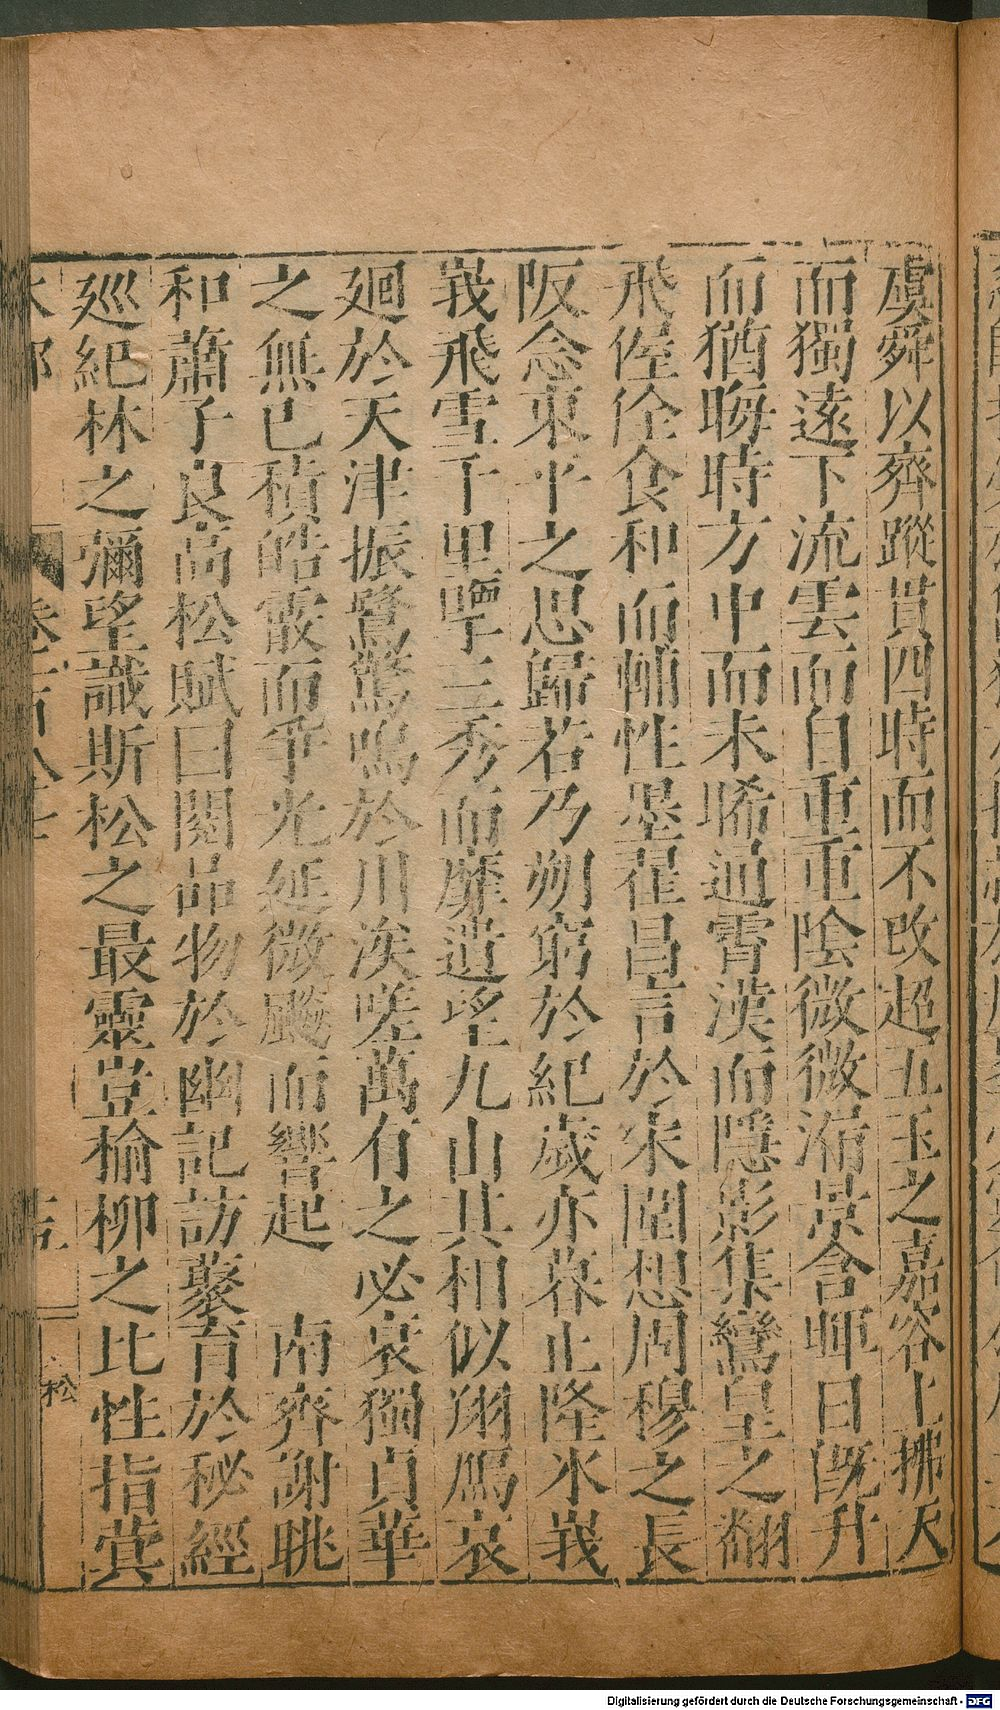 虞舜以齊蹤貫四時而不改超五玉之嘉容上拂天
而獨遠下流雲而自重重陰微微漏景含暉日旣升
而猶晦時方中而未晞過霄漢而隱影集鸞皇之翻
飛偓佺食和而輔性墨翟昌言於宋圍想周穆之長
阪念東平之思歸若乃朔窮於紀歲亦暮止隆氷峩
峩飛雪千里嘽三秀而靡遺望九山其相似翔鴈哀
廻於天津振鷺驚鳴於川涘嗟萬有之必衰獨貞華
之無已積皓霰而爭光延微飈而響起　南齊謝眺
和蕭子良高松賦曰閱品物於幽記訪藂育於秘經
廵紀林之彌望識斯松之最靈豈榆柳之比性指蓂
木部
卷一百八十七
松
Digitalisierung gefördert durch die Deutsche Forschungsgemeinschaft - DFG